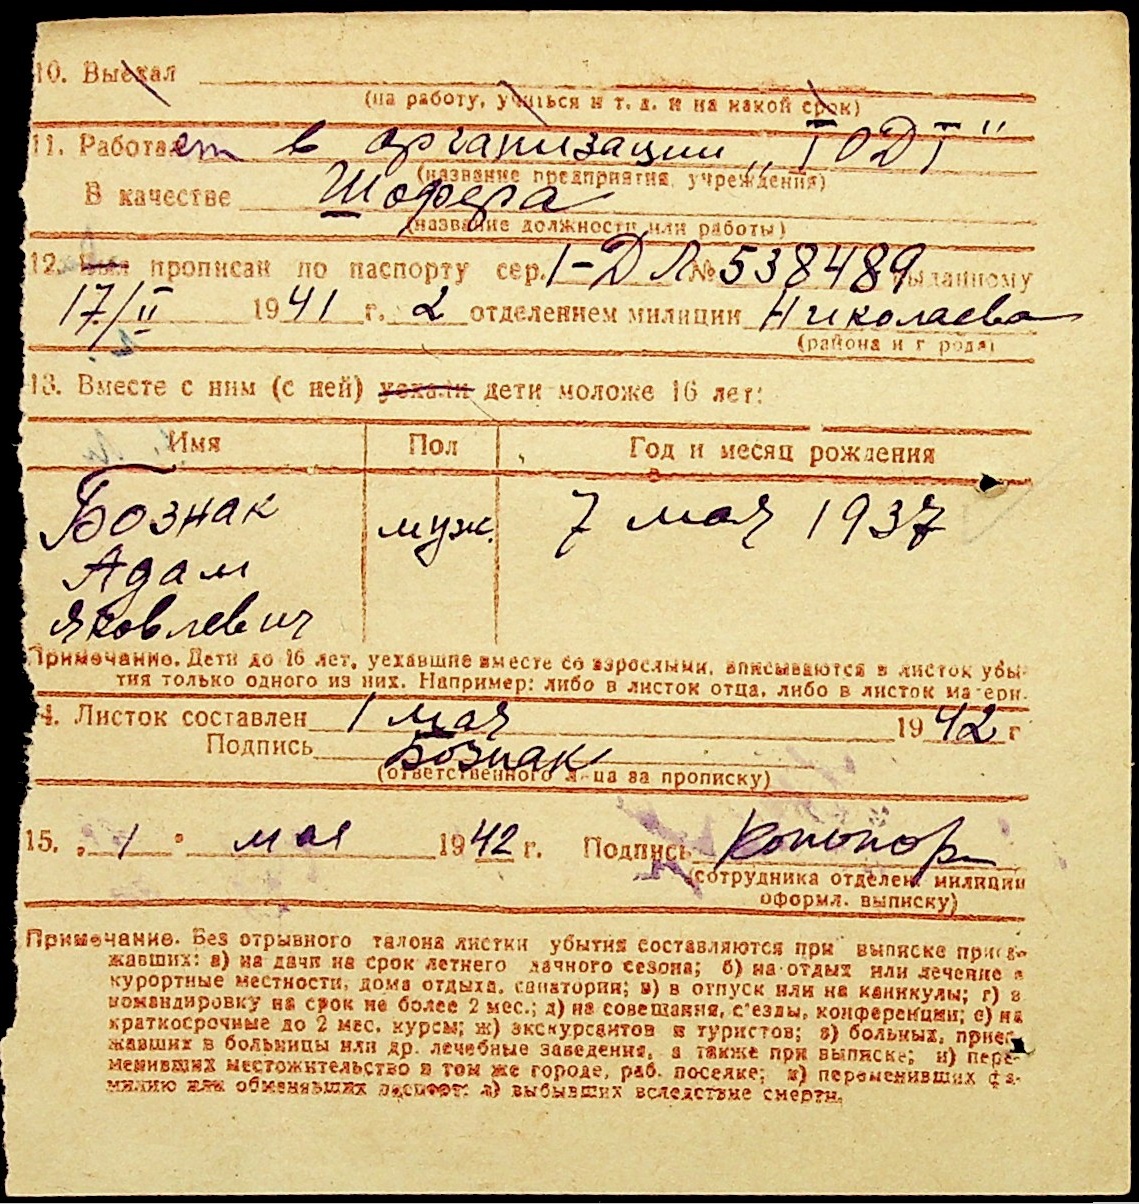 10. Выехал
(на работу, учиться и т. д. и на какой срок)
11. Работает в организации „ТОДТ"
(название предприятия, учреждения)
В качестве Шофера
(название должности или работы)
12. Был прописан по паспорту сер. I-ДЛ № 538489 выданному
17/II 1941 г. 2 отделением милиции Николаева
(района и города)
13. Вместе с ним (с ней) уехали дети моложе 16 лет:
Имя Пол Год и месяц рождения
Бознак муж. 7 мая 1937
Адам
Яковлевич
Примечание. Дети до 16 лет, уехавшие вместе со взрослыми, вписываются в листок убы-
тия только одного из них. Например: либо в листок отца, либо в листок матери.
14. Листок составлен 1 мая 1942 г
Подпись Бознак
(ответственного лица за прописку)
15. „1" мая 1942 г. Подпись
(сотрудника отделен. милиции
оформл. выписку)
Примечание. Без отрывного талона листки убытия составляются при выписке приез-
жавших: а) на дачи на срок летнего дачного сезона; б) на отдых или лечение в
курортные местности, дома отдыха, санатории; в) в отпуск или на каникулы; г) в
командировку на срок не более 2 мес.; д) на совещания, с'езды, конференции; е) на
краткосрочные до 2 мес. курсы; ж) экскурсантов и туристов; з) больных, приез-
жавших в больницы или др. лечебные заведения, а также при выписке; и) пере-
менивших местожительство в том же городе, раб. поселке; к) переменивших фа-
милию или обменявших паспорт; л) выбывших вследствие смерти.